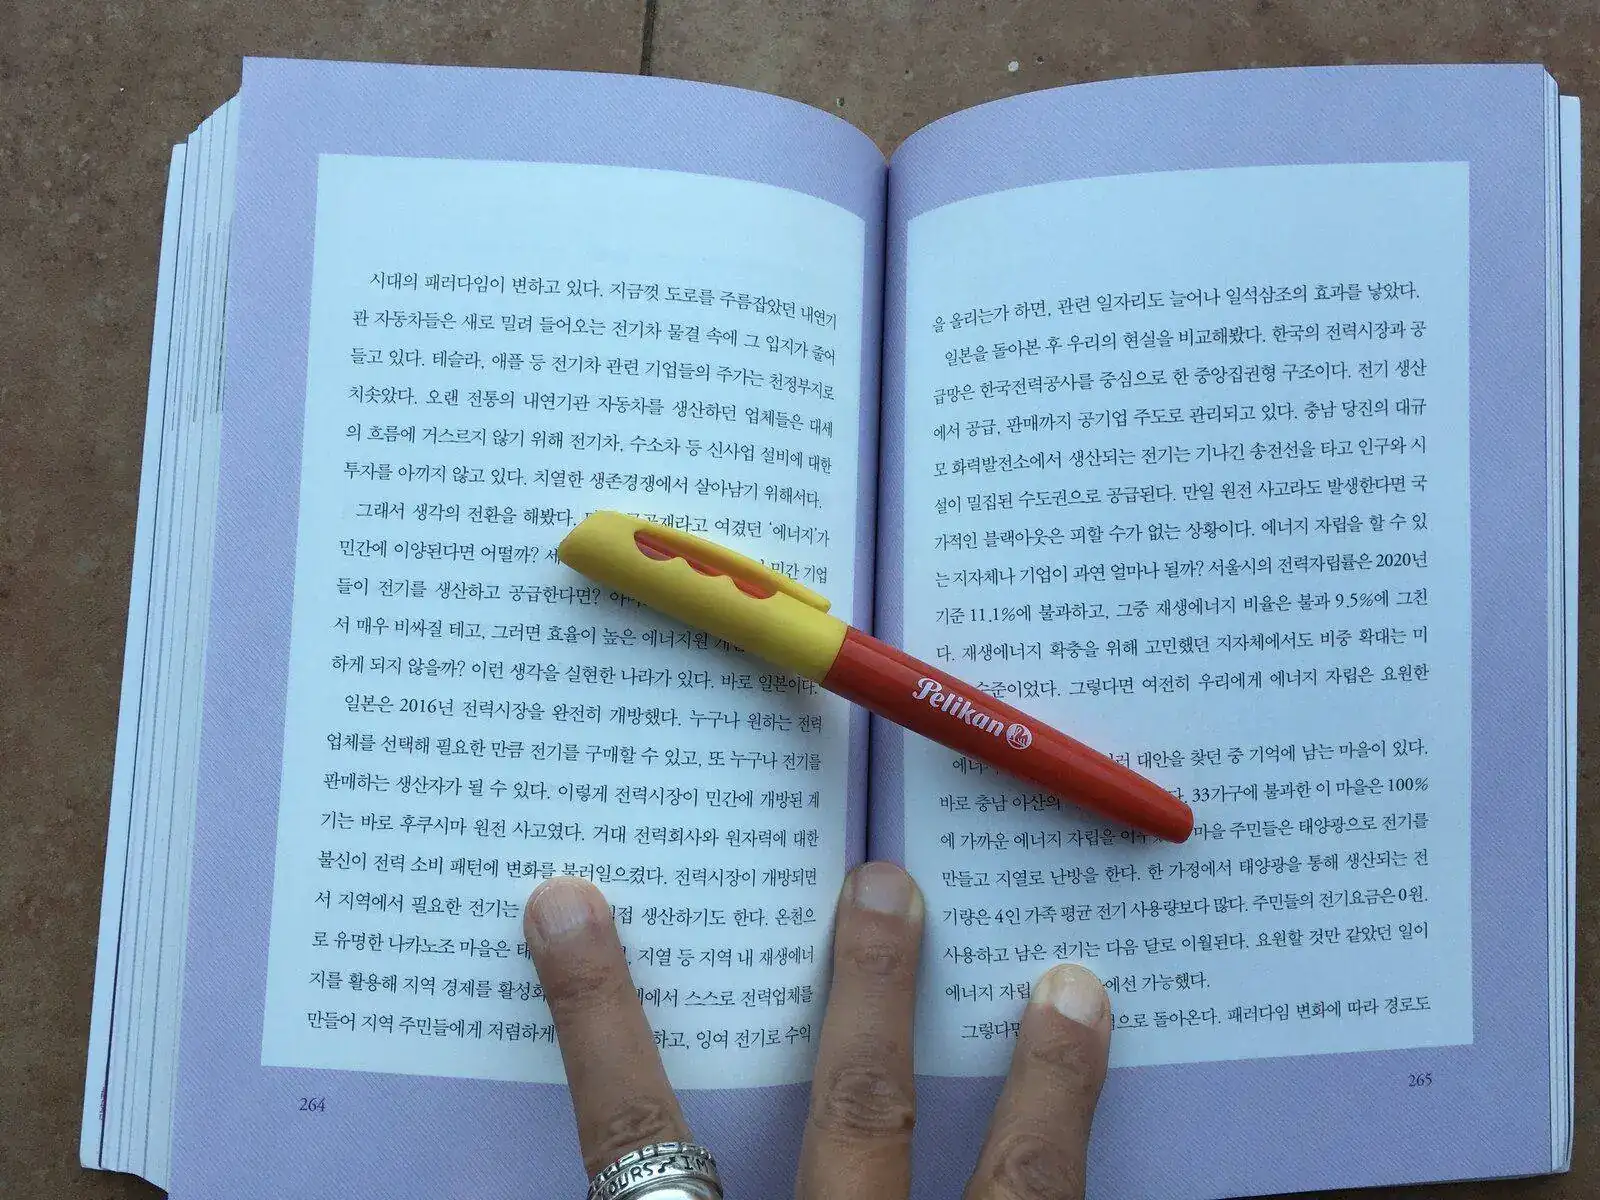 시대의 패러다임이 변하고 있다. 지금껏 도로를 주름잡았던 내연기
관 자동차들은 새로 밀려 들어오는 전기차 물결 속에 그 입지가 줄어
들고 있다. 테슬라, 애플 등 전기차 관련 기업들의 주가는 천정부지로
치솟았다. 오랜 전통의 내연기관 자동차를 생산하던 업체들은 대세
의 흐름에 거스르지 않기 위해 전기차, 수소차 등 신사업 설비에 대한
투자를 아끼지 않고 있다. 치열한 생존경쟁에서 살아남기 위해서다.
그래서 생각의 전환을 해봤다. 여겼던 ‘에너지’가
민간에 이양된다면 어떨까? 민간 기업
들이 전기를 생산하고 공급한다면?
서 매우 비싸질 테고, 그러면 효율이 높은 에너지원
하게 되지 않을까? 이런 생각을 실현한 나라가 있다. 바로 일본이다.
일본은 2016년 전력시장을 완전히 개방했다. 누구나 원하는 전력
업체를 선택해 필요한 만큼 전기를 구매할 수 있고, 또 누구나 전기를
판매하는 생산자가 될 수 있다. 이렇게 전력시장이 민간에 개방된 계
기는 바로 후쿠시마 원전 사고였다. 거대 전력회사와 원자력에 대한
불신이 전력 소비 패턴에 변화를 불러일으켰다. 전력시장이 개방되면
서 지역에서 필요한 전기는 생산하기도 한다. 온천으
로 유명한 나카노조 마을은 지열 등 지역 내 재생에너
지를 활용해 지역 경제를 활성화 스스로 전력업체를
만들어 지역 주민들에게 저렴하게 하고, 잉여 전기로 수익
264
을 올리는가 하면, 관련 일자리도 늘어나 일석삼조의 효과를 낳았다.
일본을 돌아본 후 우리의 현실을 비교해봤다. 한국의 전력시장과 공
급망은 한국전력공사를 중심으로 한 중앙집권형 구조이다. 전기 생산
에서 공급, 판매까지 공기업 주도로 관리되고 있다. 충남 당진의 대규
모 화력발전소에서 생산되는 전기는 기나긴 송전선을 타고 인구와 시
설이 밀집된 수도권으로 공급된다. 만일 원전 사고라도 발생한다면 국
가적인 블랙아웃은 피할 수가 없는 상황이다. 에너지 자립을 할 수 있
는 지자체나 기업이 과연 얼마나 될까? 서울시의 전력자립률은 2020년
기준 11.1%에 불과하고, 그중 재생에너지 비율은 불과 9.5%에 그친
다. 재생에너지 확충을 위해 고민했던 지자체에서도 비중 확대는 미
수준이었다. 그렇다면 여전히 우리에게 에너지 자립은 요원한
대안을 찾던 중 기억에 남는 마을이 있다.
바로 충남 아산의 33가구에 불과한 이 마을은 100%
에 가까운 에너지 자립을 마을 주민들은 태양광으로 전기를
만들고 지열로 난방을 한다. 한 가정에서 태양광을 통해 생산되는 전
기량은 4인 가족 평균 전기 사용량보다 많다. 주민들의 전기요금은 0원.
사용하고 남은 전기는 다음 달로 이월된다. 요원할 것만 같았던 일이
에너지 자립 가능했다.
돌아온다. 패러다임 변화에 따라 경로도
265
Pelikan
OURS I'M